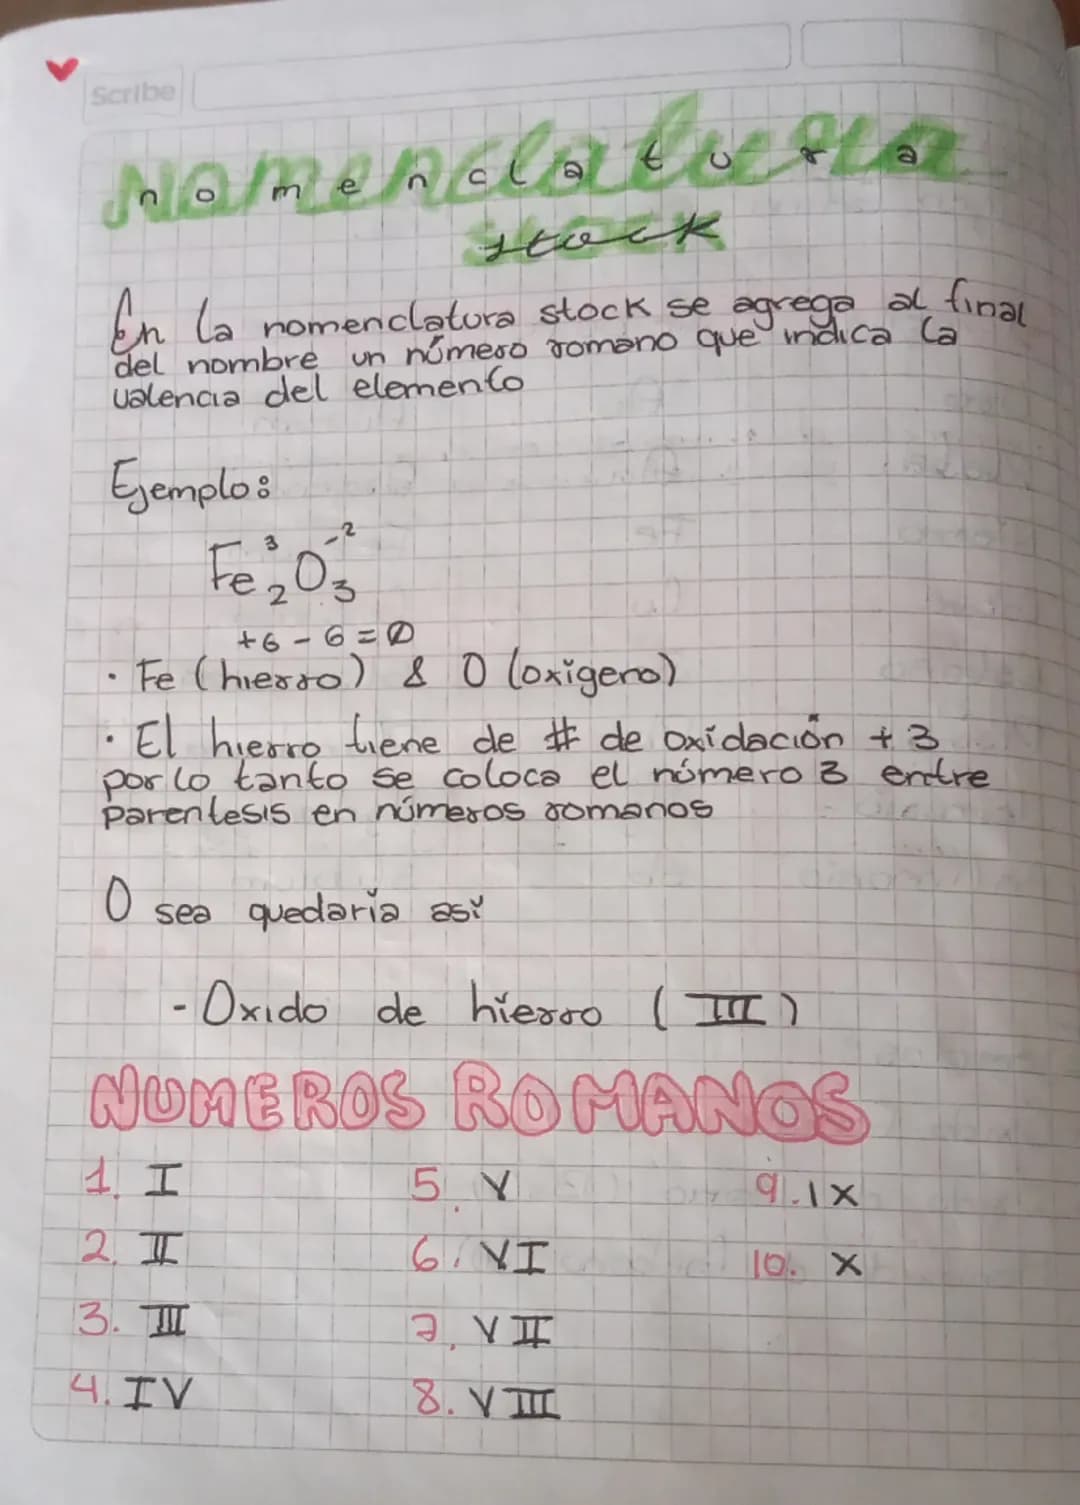 Scribe
nomenclatura
stock
En la nomenclatura stock se agrega al final
del nombre un número romano que indica la
valencia del elemento
Ejemplo:
Fe₂³O₃⁻²
+6 - 6 = 0
· Fe (hierro) & O (oxigeno)
· El hierro tiene de # de oxidación + 3
por lo tanto se coloca el número 3 entre
parentesis en números romanos
O sea quedaría así
- Oxido de hierro (III)
NUMEROS ROMANOS
1. I 5. V 9. IX
2. II 6. VI 10. X
3. III 7. VII
4. IV 8. VIII